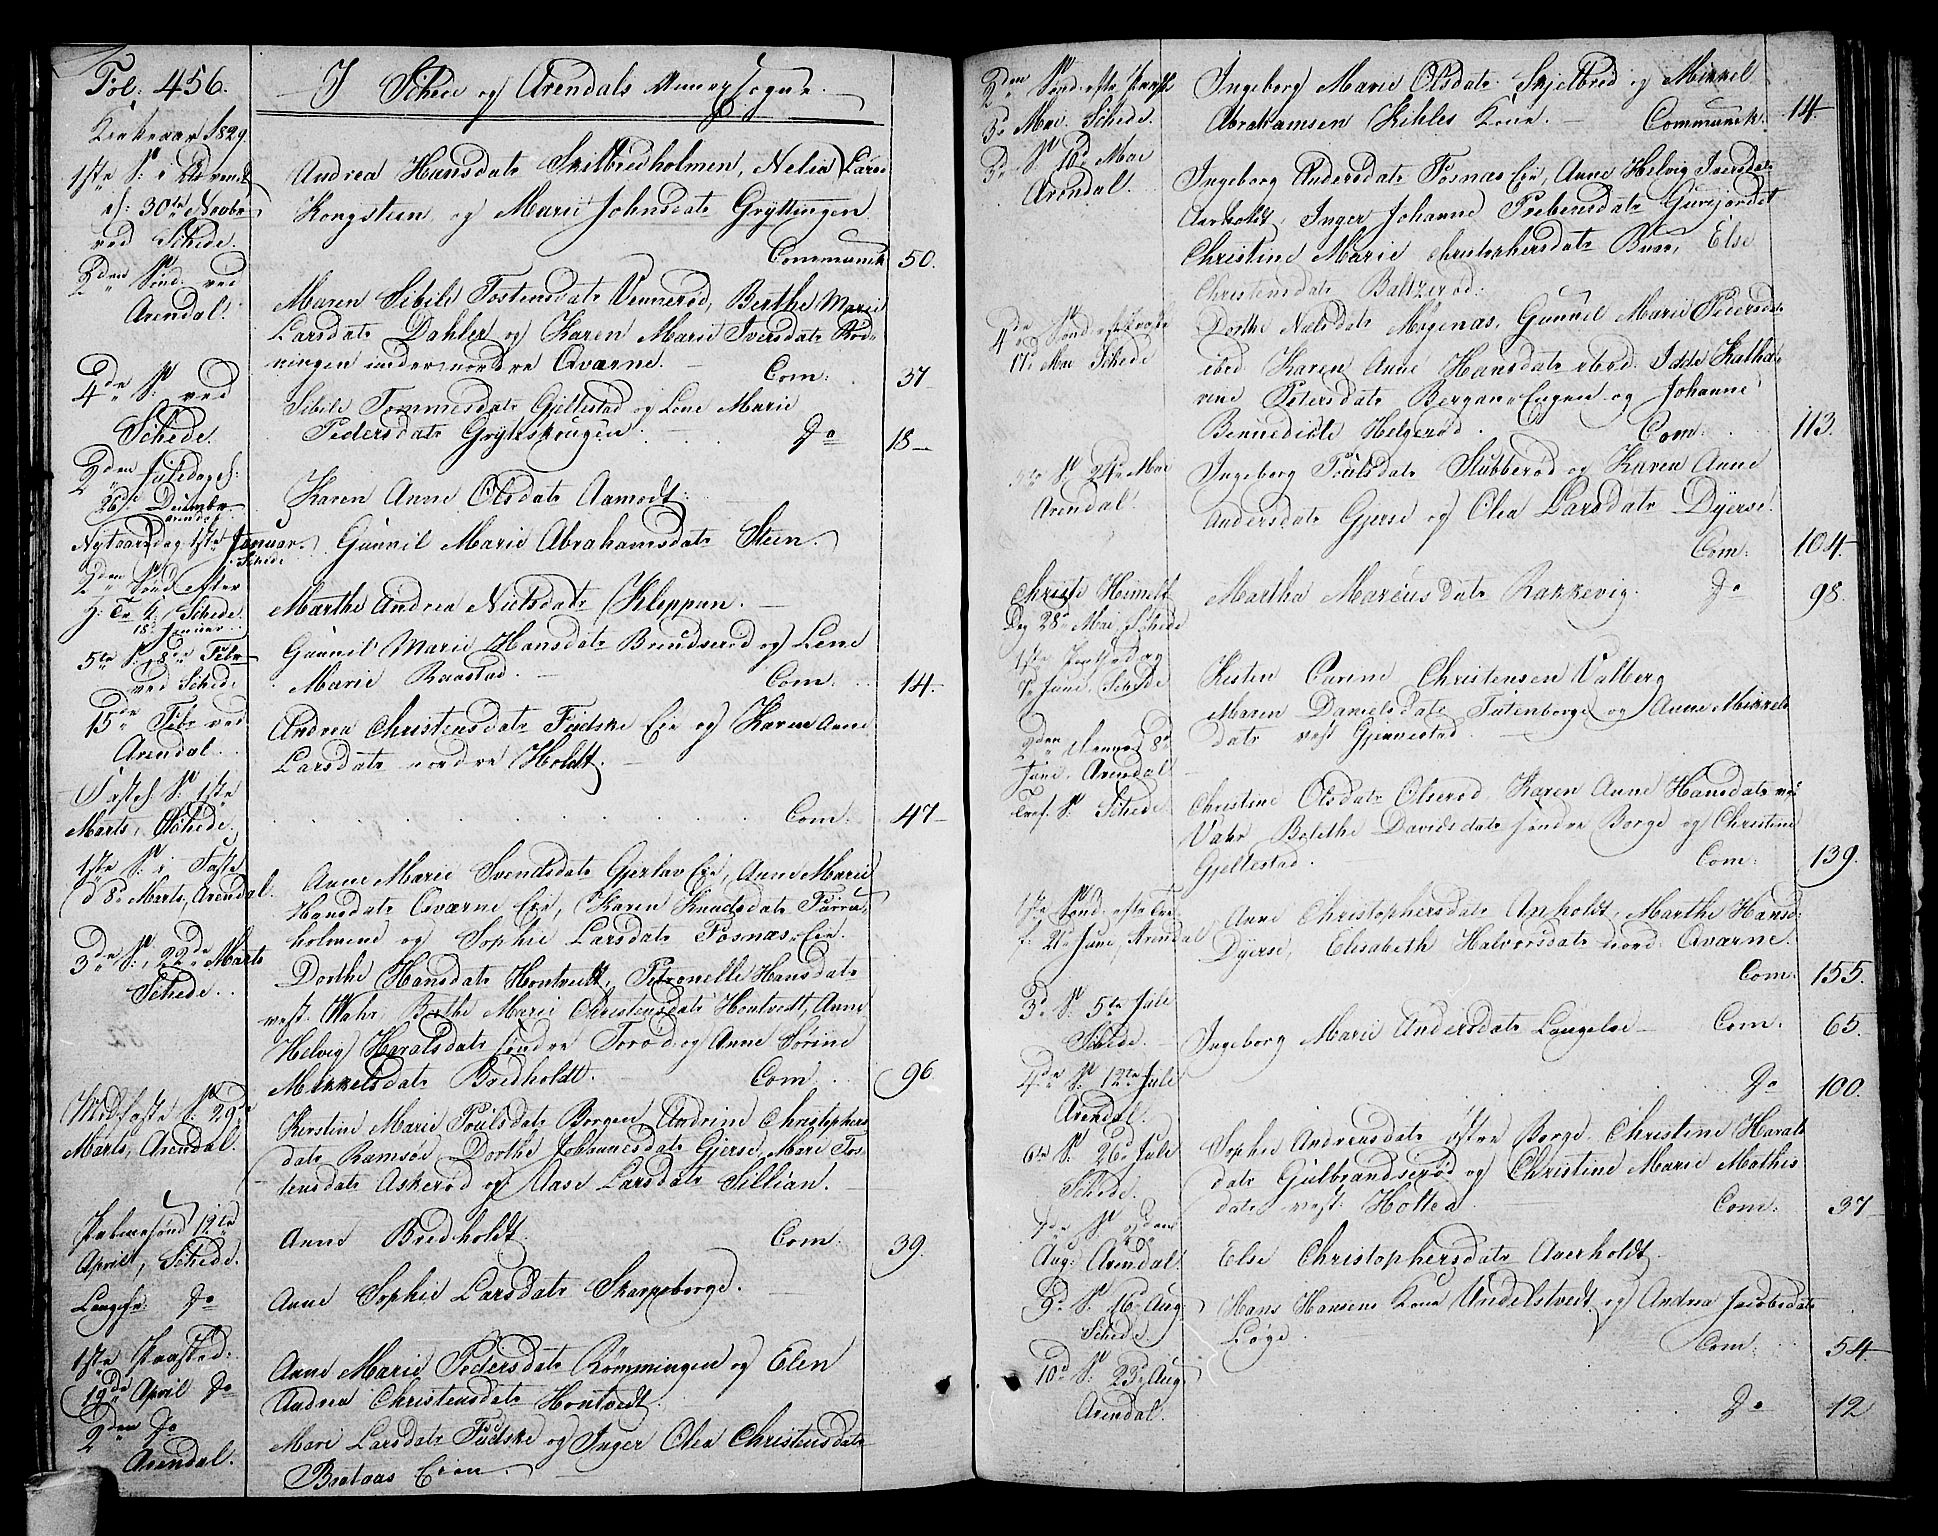 Fol: 456.
I Schee og Arendals Annexsogne.
Kirkeaar 1829
1ste S: i Advent
d: 30te Novbr
ved Schede.
Andrea Hansdatr Skilbredholmen, Nelia Larss
Kongsteen og Marie Johnsdatr Gryttingen
Communik 50.
2den Sønd: ved
Arendal.
Maren Sibile Tostensdatr Vennerød, Berthe Marie
Larsdatr Dahler og Karen Marie Iversdatr Rød-
ningen under nordre Qværne.
Com: 37
4de S: ved
Schede.
Sibile Tommesdatr Gjellestad og Lene Marie
Pedersdatr Gryteskougen. Do 18
2den Juledag
26de Decembr
Arendal
Karen Anne Olsdatr Aamodt.
Nytaarsdag 1ste Januar.
Schede
Gunnil Marie Abrahamsdatr Steen.
2den Sønd efter
h: Tr: K: Schede
18de Januar
Marthe Andrea Nielsdatr Kleppan.
5te S: 8de Febr
ved Schede
Gunnil Marie Hansdatr Brendserød og Lene
Marie Raastad. Com: 14.
15de Febr ved
Arendal
Andrea Christensdatr Fudske Eie og Karen Anne
Larsdatr nordre Holdt.
Fastel: S: 1ste
Marts, Schede.
Com: 47
1ste S: i Faste
d 8de Marts, Arendal.
Anne Marie Svendsdatr Gjerlav Eie, Anne Marie
Hansdatr Qværne Eie, Karen Knudsdatr Furru-
holmene og Sophie Larsdatr Fosnas Eie.
3de S: 22de Marts
Schede.
Dorthe Hansdatr Hontvedt, Petronelle Hansdatr
vest: Wahr, Berthe Marie Christensdatr Hontvedt, Anne
Helvig Haralsdatr søndre Torød og Anne Sørine
Mikkelsdatr Bredholdt. Com 96
Midfaste S: 29de
Marts, Arendal.
Kirstine Marie Poulsdatr Borgen, Andrine Christophers
datr Ramsøe, Dorthe Johannesdatr Gjersø, Mari Tos-
tensdatr Askerød og Aase Larsdatr Sillian.
Palmesønd 12te
April, Schede.
Anne Bredholdt. Com: 39.
Langefr: Do
Anne Sophie Larsdatr Skarpeborge.
1ste Paasked:
19de April Do
Anne Marie Pedersdatr Rømmingen og Elen
Andrea Christensdatr Hontvedt.
2den Do
Arendal.
Mari Larsdatr Fudske og Inger Olea Christensdatr
Brataas Eien.
2den Sønd: efter Paaske
3de Mai. Schede.
Ingeborg Marie Olsdatr Skjelbred og Mikkel
Abrahamsen Kihles Kone. Communik: 14.
3de S: 10de Mai
Arendal.
Ingeborg Andersdatr Fosnas Eie, Anne Helvig Iversdatr
Aarholdt, Inger Johanne Prebensdatr Gurijordet
Christine Marie Christophersdatr Buer, Else
Christensdatr Baltzerød.
4de Sønd: efter Paaske
17de Mai Schede
Dorthe Nielsdatr Mogenas, Gunnil Marie Pedersdatr
ibed Karen Anne Hansdatr ibed: Idde Katha-
rine Petersdatr Bergan-Engen og Johanne
Bennedicte Helgerød. Com: 113.
5te S: 24de Mai
Arendal.
Ingeborg Poulsdatr Stubberød og Karen Anne
Andersdatr Gjersø og Olea Larsdatr Dyersø.
Com: 104
Christi Himelf
Dag 28de Mai, Schede
Martha Marcusdatr Rakkevig. Do 98.
1ste Pintsedag
7de Juni, Schede
Kisten Carine Christensen Valberg
2den 8de
Juni, Arendal
Maren Danielsdatr Tutenborge og Anne Mikkels
datr vest Gjennestad.
Tref: S: Schede
Christine Olsdatr Olserød Karen Anne Hansdatr
Vahr Bolethe Davidsdatr søndre Borge og Christine
Gjellestad. Com: 139.
1ste Sønd: efter Tre
f: 21de Juni, Arendal
Anne Christophersdatr Anholdt, Marthe Hansd:
Dyersø, Elisabeth Halvorsdatr nord: Qværne.
Com: 155.
3de S: 5te Juli
Schede.
Ingeborg Marie Andersdatr Langelse Com: 65.
4de S: 12te Juli
Arendal.
Do 100.
6te S: 26de Juli
Schede.
Sophie Andreasdatr østre Borge, Christine Harals
datr Gulbrandserød og Christine Marie Mathis
datr vest: Holtea. Com: 37
Aug: Arendal.
Else Christophersdatr Aaerholdt.
9de S: 16de Aug
Schede
Hans Hansens Kone Undelstvedt og Andrea Jacobsdatr
Løge. Com: 54
10de S: 23de Aug
Arendal.
Do 12